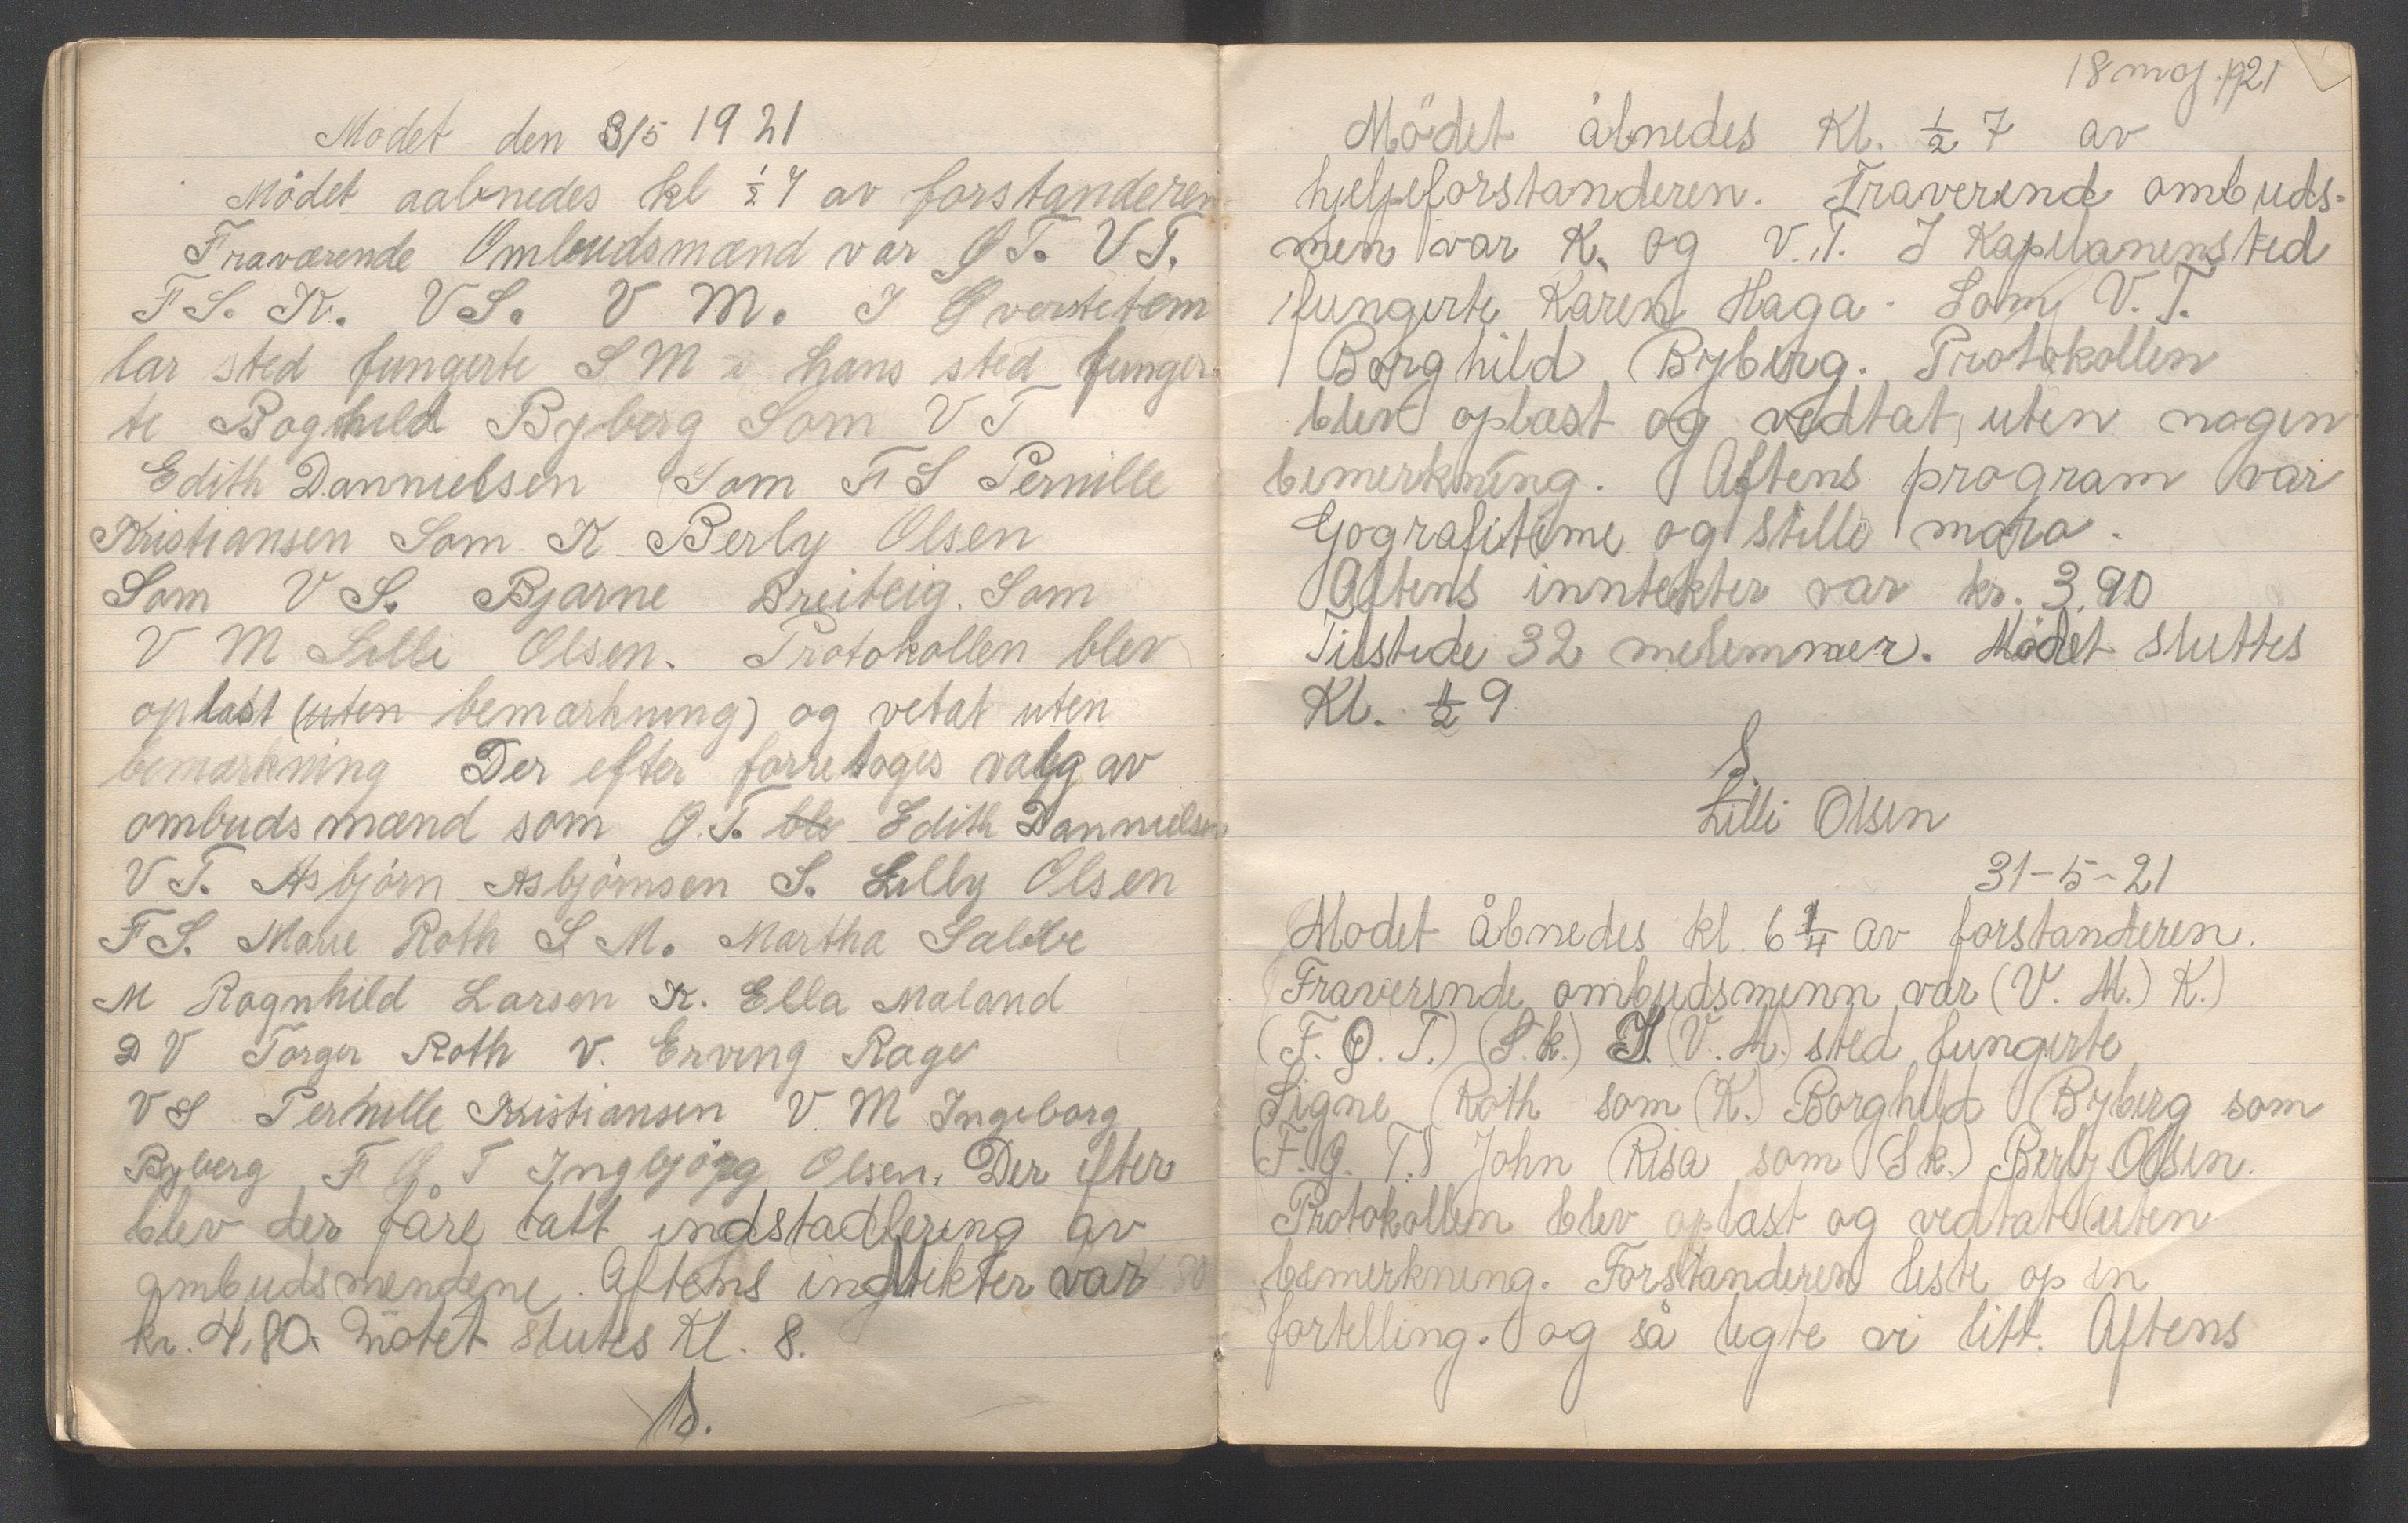 Modet den 3/5 1921
Mödet aabnedes kl ½ 7 av forstanderen
Fraværende Ombudsmænd var Ø T. V T.
F S. K. V S. V M. I Øverstetem
lar sted fungerte S M i hans sted funger-
te Boghild Byberg Som V T
Edith Dannielsen Som F S Pernille
Kristiansen Som K Berly Olsen
Som V S. Bjarne Breiteig. Som
V M Lilli Olsen. Protokollen blev
oplast (uten bemærkning) og vetat uten
bemærkning Der efter forretoges valg av
ombudsmænd som Ø. T. ble Edith Dannielsen
V T. Asbjörn Asbjörnsen S. Lilly Olsen
F S. Marie Roth S M. Martha Salte
M Ragnhild Larsen K. Ella Maland
D V Torger Roth V. Erving Rage
V S Pernille Kristiansen V. M Ingeborg
Byberg F Ø T Ingbjörg Olsen. Der efter
blev der fåre tatt indstadlering av
ombudsmendene. Aftens indtekter var
kr. 4,80. Mötet slutes Kl. 8.
S.
18 maj. 1921
Mödet åbnedes Kl. ½ 7 av
hjelpeforstanderen. Fraverend ombuds-
men var K. og V. T. I Kapelanensted
fungerte Karen Haga. Som V. T.
Borghild Byberg. Protokollen
blev oplæst og vedtat, uten nogen
bemerkning. Aftens program var
Gografitime og stille moro.
Aftens inntekter var kr. 3,90
Tilstede 32 melemmer. Mödet sluttes
Kl. ½ 9
S.
Lilli Olsen
31-5-21
Modet åbnedes kl. 6 ¼ av forstanderen.
Fraverende ombudsmenn var (V. M.) K.)
(F. Ø. T.) (S.k.) I. (V. M.) sted fungerte
Signe Roth som (K.) Borghild Byberg som
(F. Ø. T.) John Risa som (S k.) Berly Olsen.
Protokollen blev oplæst og vedtatt uten
bemerkning. Forstanderen leste op en
fortelling. og så legte vi litt. Aftens